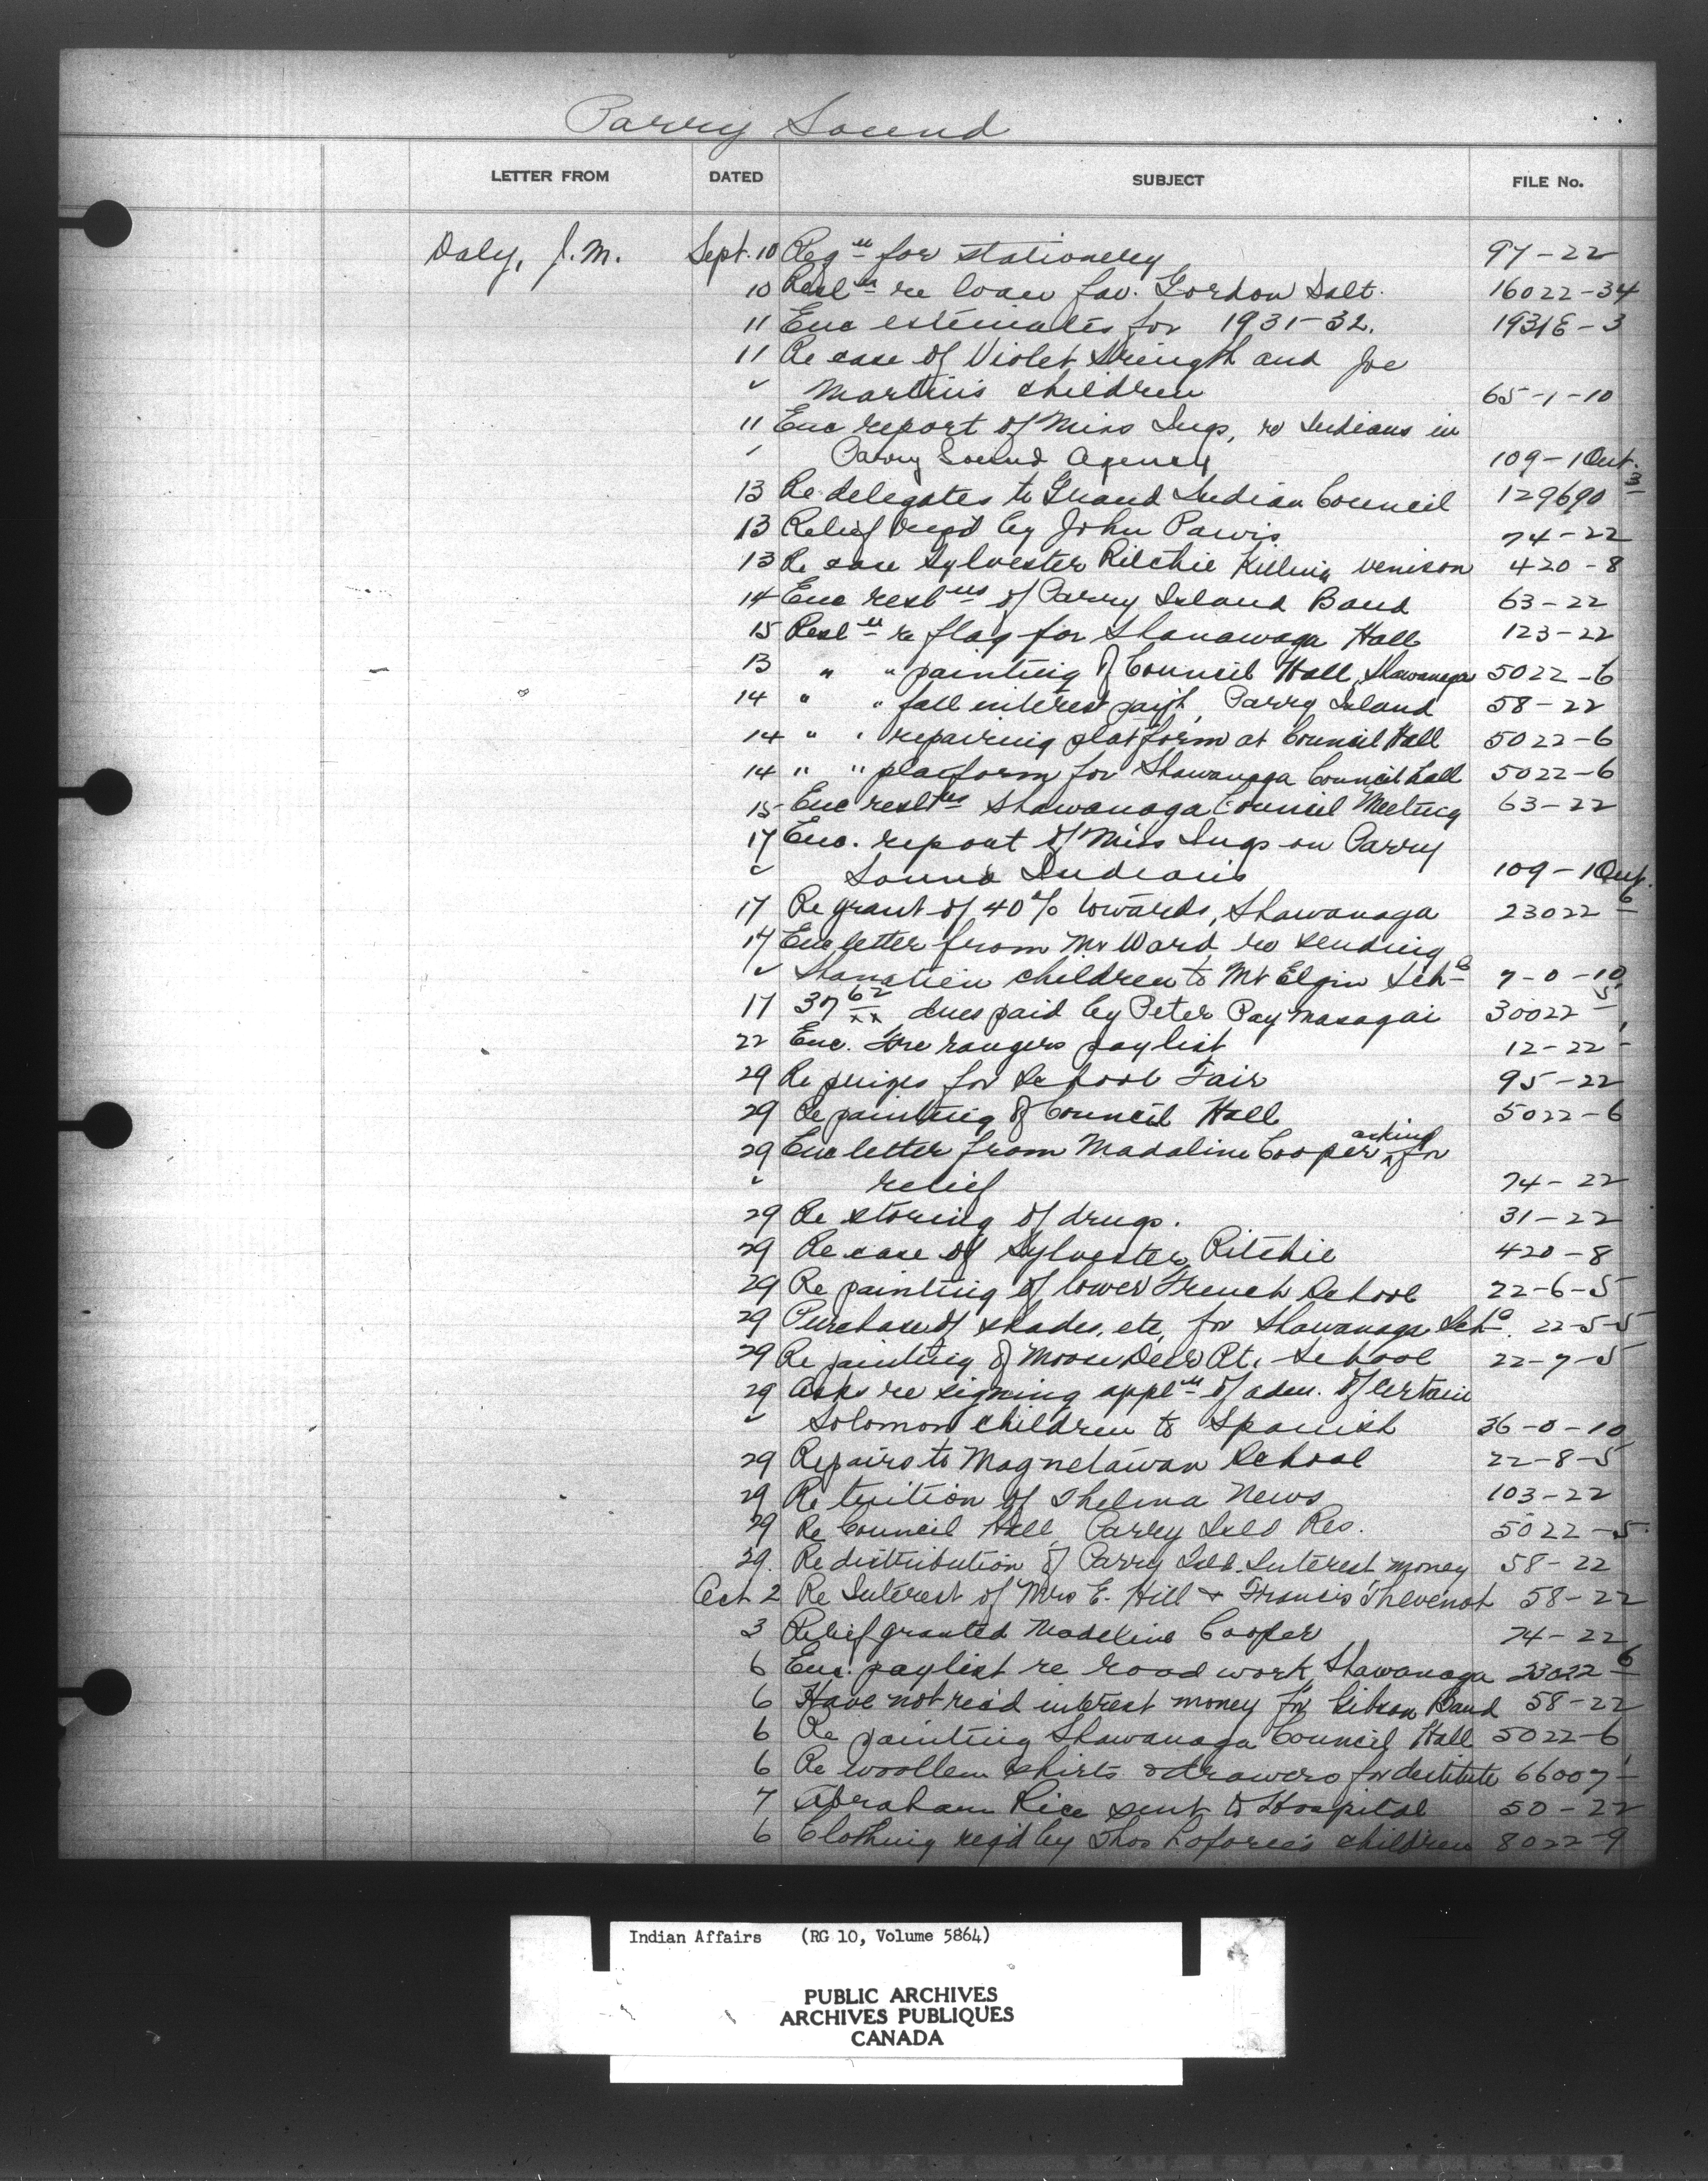 Parry Sound
LETTER FROM DATED SUBJECT FILE No.
Daly, J.M. Sept. 10 Reqn for stationery 97-22
10 Resln re loan fav. Gordon Salt. 16022-34
11 Enc estimates for 1931-32. 1931E-3
11 Re case of Violet Strength and Joe
" Martin's children 65-1-10
11 Enc report of Miss Ings, re Indians in
" Parry Sound Agency 109-1 Ont.
13 Re delegates to Grand Indian Council 129690-3
13 Relief reqd by John Pawis 74-22
13 Re case Sylvester Ritchie Killing venison 420-8
14 Enc reslns of Parry Island Band 63-22
15 Resln re flag for Shanawaga Hall 123-22
13 " " painting of Council Hall, Shawanaga 5022-6
14 " " fall interest pay't, Parry Island 58-22
14 " " repairing platform at Council Hall 5022-6
14 " " platform for Shawanaga Council hall 5022-6
15 Enc reslns Shawanaga Council Meeting 63-22
17 Enc. report of Miss Ings on Parry
" Sound Indians 109-1 Ont.
17 Re grant of 40% towards, Shawanaga 23022-6
17 Enc letter from Mr Ward re sending
" children to Mt Elgin Schl 7-0-10
17 37 62/xx dues paid by Peter Paymasagai 30022-5
22 Enc. fire rangers paylist 12-22
29 Re prizes for School Fair 95-22
29 Re painting of Council Hall 5022-6
29 Enc letter from Madaline Cooper asking for
" relief 74-22
29 Re storing of drugs. 31-22
29 Re case of Sylvester Ritchie 420-8
29 Re painting of lower French School 22-6-5
29 Purchase of shades, etc, for Shawanaga Schl. 22-5-5
29 Re painting of Moose Deer Pt. School 22-7-5
29 Asks re signing appln of adm. of certain
" Solomon children to Spanish 36-0-10
29 Repairs to Magnetawan School 22-8-5
29 Re tuition of Thelma News 103-22
29 Re Council Hall, Parry Isld Res. 5022-5
29. Re distribution of Parry Isld. Interest money 58-22
Oct 2 Re Interest of Mrs E. Hill & Francis Thevenot 58-22
3 Relief granted Madeline Cooper 74-22
6 Enc. paylist re road work, Shawanaga 23022-6
6 Have not rec'd interest money for Gibson Band 58-22
6 Re painting Shawanaga Council Hall 5022-6
6 Re woollen shirts & drawers for destitute 66007-1
7 Abraham Rice sent to Hospital 50-22
6 Clothing req'd by Thos Laforce's children 8022-9
Indian Affairs (RG 10, Volume 5864)
PUBLIC ARCHIVES
ARCHIVES PUBLIQUES
CANADA